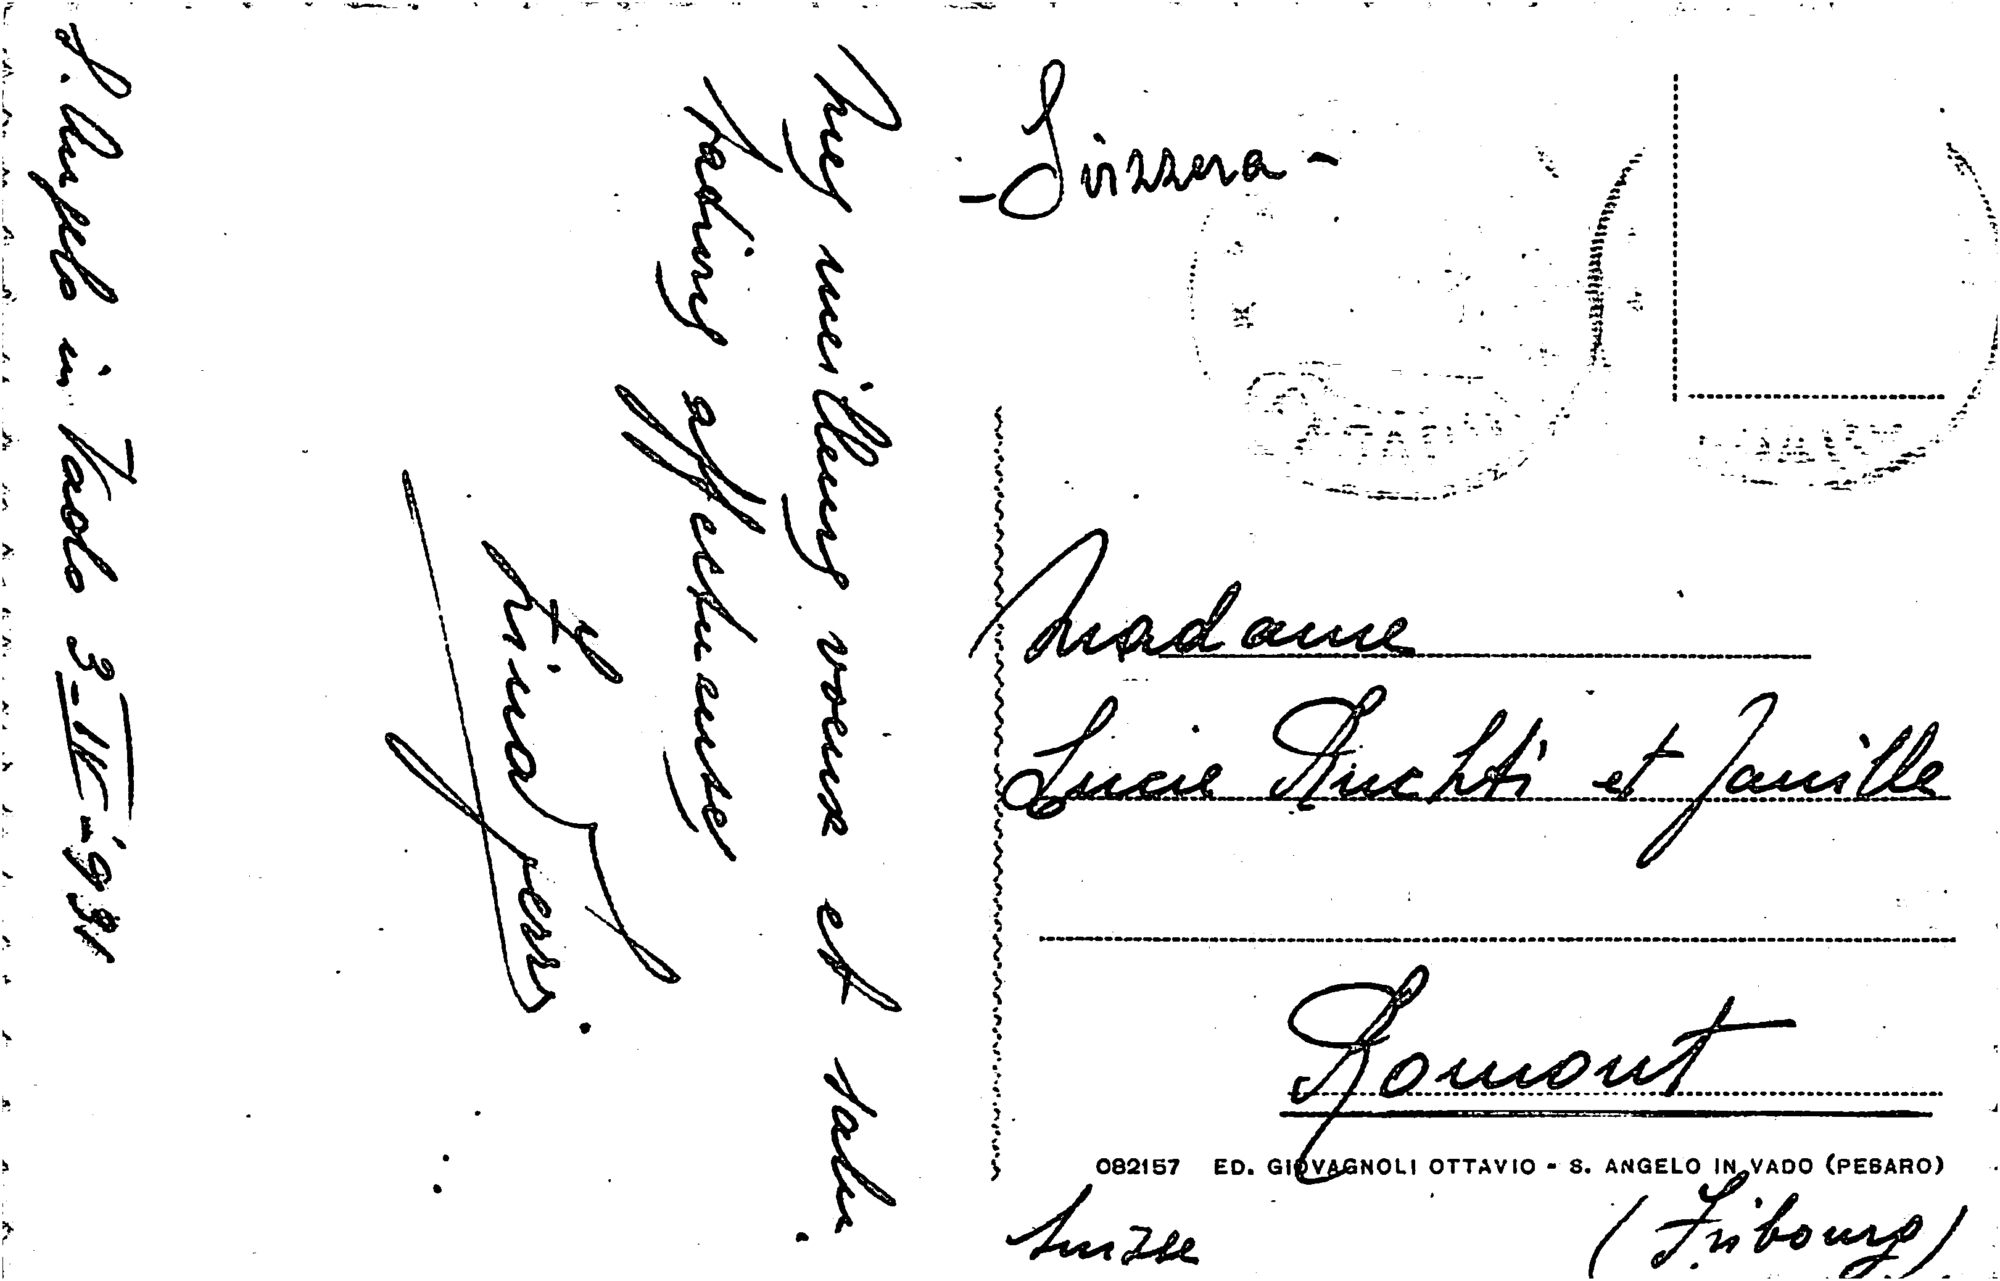 S. Angelo in Vado 3-IV-931
Mes meilleurs voeux et salu-
tations affectueuses
Lina Ferri.
- Svizzera -
Madame
Lucie Ruchti et famille
Romont
082157 ED. GIOVAGNOLI OTTAVIO - S. ANGELO IN VADO (PESARO)
Suisse (Fribourg)